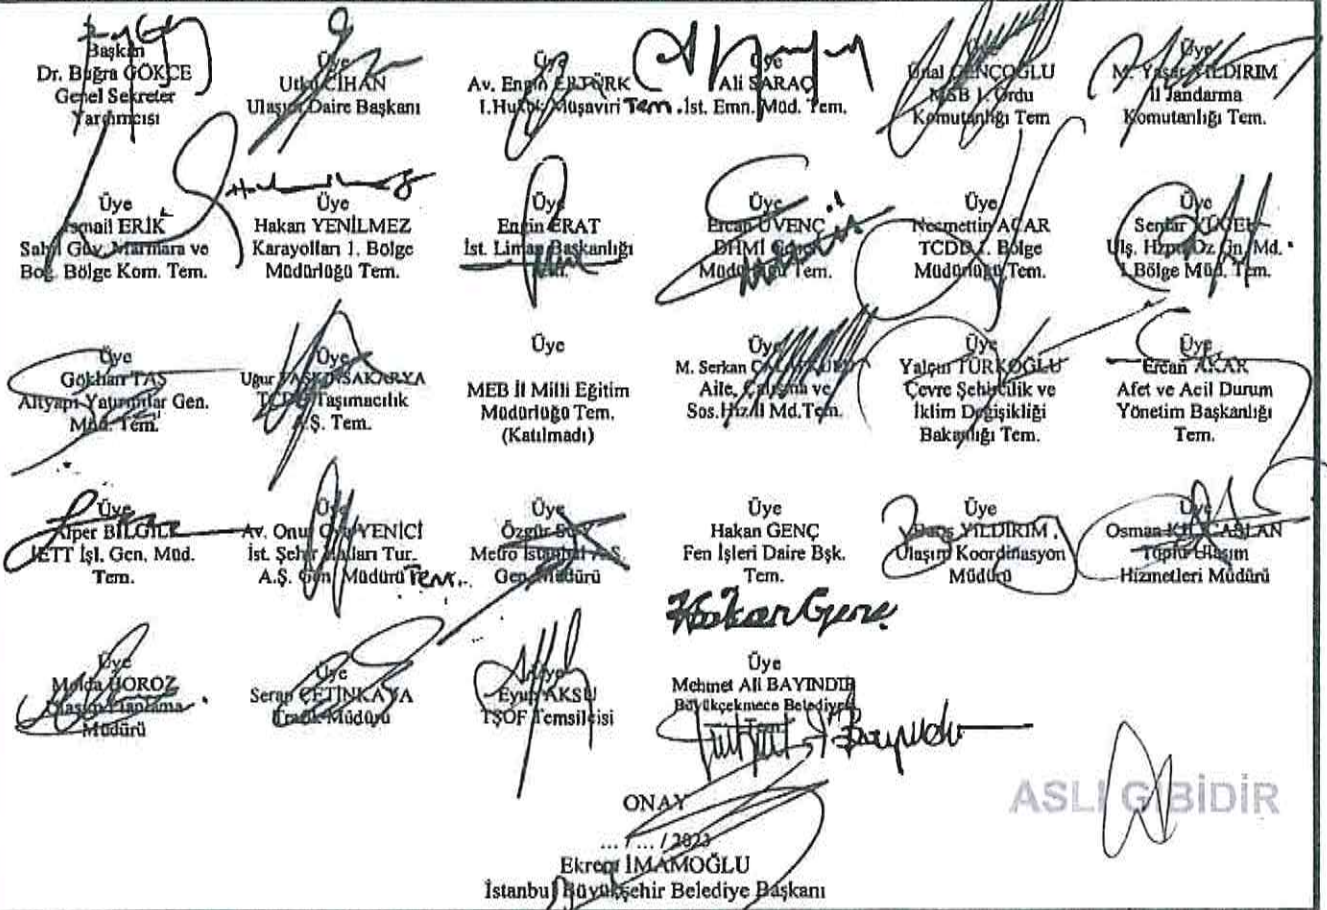 Başkan
Dr. Buğra GÖKÇE
Genel Sekreter
Yardımcısı
Üye
Utku CİHAN
Ulaşım Daire Başkanı
Üye
Av. Engin ERTÜRK
I.Hukuk Müşaviri Tem.
Üye
Ali SARAÇ
İst. Emn. Müd. Tem.
Üye
Ünal GENÇOĞLU
MSB 1. Ordu
Komutanlığı Tem
Üye
M. Yaşar YILDIRIM
İl Jandarma
Komutanlığı Tem.
Üye
İsmail ERİK
Sahil Güv. Marmara ve
Boğ. Bölge Kom. Tem.
Üye
Hakan YENİLMEZ
Karayolları 1. Bölge
Müdürlüğü Tem.
Üye
Engin ERAT
İst. Liman Başkanlığı
Üye
Ercan ÜVENÇ
DHMİ
Müdürlüğü Tem.
Üye
Necmettin ACAR
TCDD 1. Bölge
Müdürlüğü Tem.
Üye
Serdar YÜCEL
Ulş. Hizm. Dz. Gn. Md.
1.Bölge Müd. Tem.
Üye
Gökhan TAŞ
Altyapı Yatırımlar Gen.
Müd. Tem.
Üye
Uğur SAKARYA
TCDD Taşımacılık
A.Ş. Tem.
Üye
MEB İl Milli Eğitim
Müdürlüğü Tem.
(Katılmadı)
Üye
M. Serkan
Aile, Çalışma ve
Sos.Hiz. İl Md.Tem.
Üye
Yalçın TÜRKOĞLU
Çevre Şehircilik ve
İklim Değişikliği
Bakanlığı Tem.
Üye
Ercan AKAR
Afet ve Acil Durum
Yönetim Başkanlığı
Tem.
Üye
Alper BİLGİLİ
İETT İşl. Gen. Müd.
Tem.
Üye
Av. Onur YENİCİ
İst. Şehir Hatları Tur.
A.Ş. Gen. Müdürü Tem.
Üye
Özgür
Metro İstanbul A.Ş.
Gen. Müdürü
Üye
Hakan GENÇ
Fen İşleri Daire Bşk.
Tem.
Hakan Genç
Üye
Barış YILDIRIM
Ulaşım Koordinasyon
Müdürü
Üye
Osman KILIÇASLAN
Toplu Ulaşım
Hizmetleri Müdürü
Üye
Melda HOROZ
Ulaşım Planlama
Müdürü
Üye
Seran ÇETİNKAYA
Trafik Müdürü
Üye
Eyup AKSU
TŞOF Temsilcisi
Üye
Mehmet Ali BAYINDIR
Büyükçekmece Belediyesi
Tem.
ONAY
... / ... / 2023
Ekrem İMAMOĞLU
İstanbul Büyükşehir Belediye Başkanı
ASLI GİBİDİR